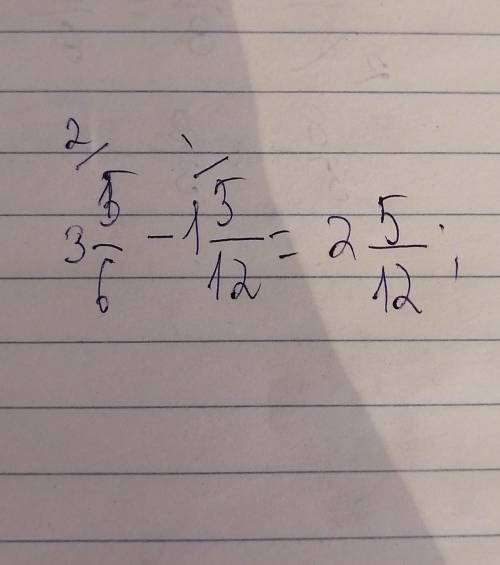 2/ 1/
3 5/6 - 1 5/12 = 2 5/12;